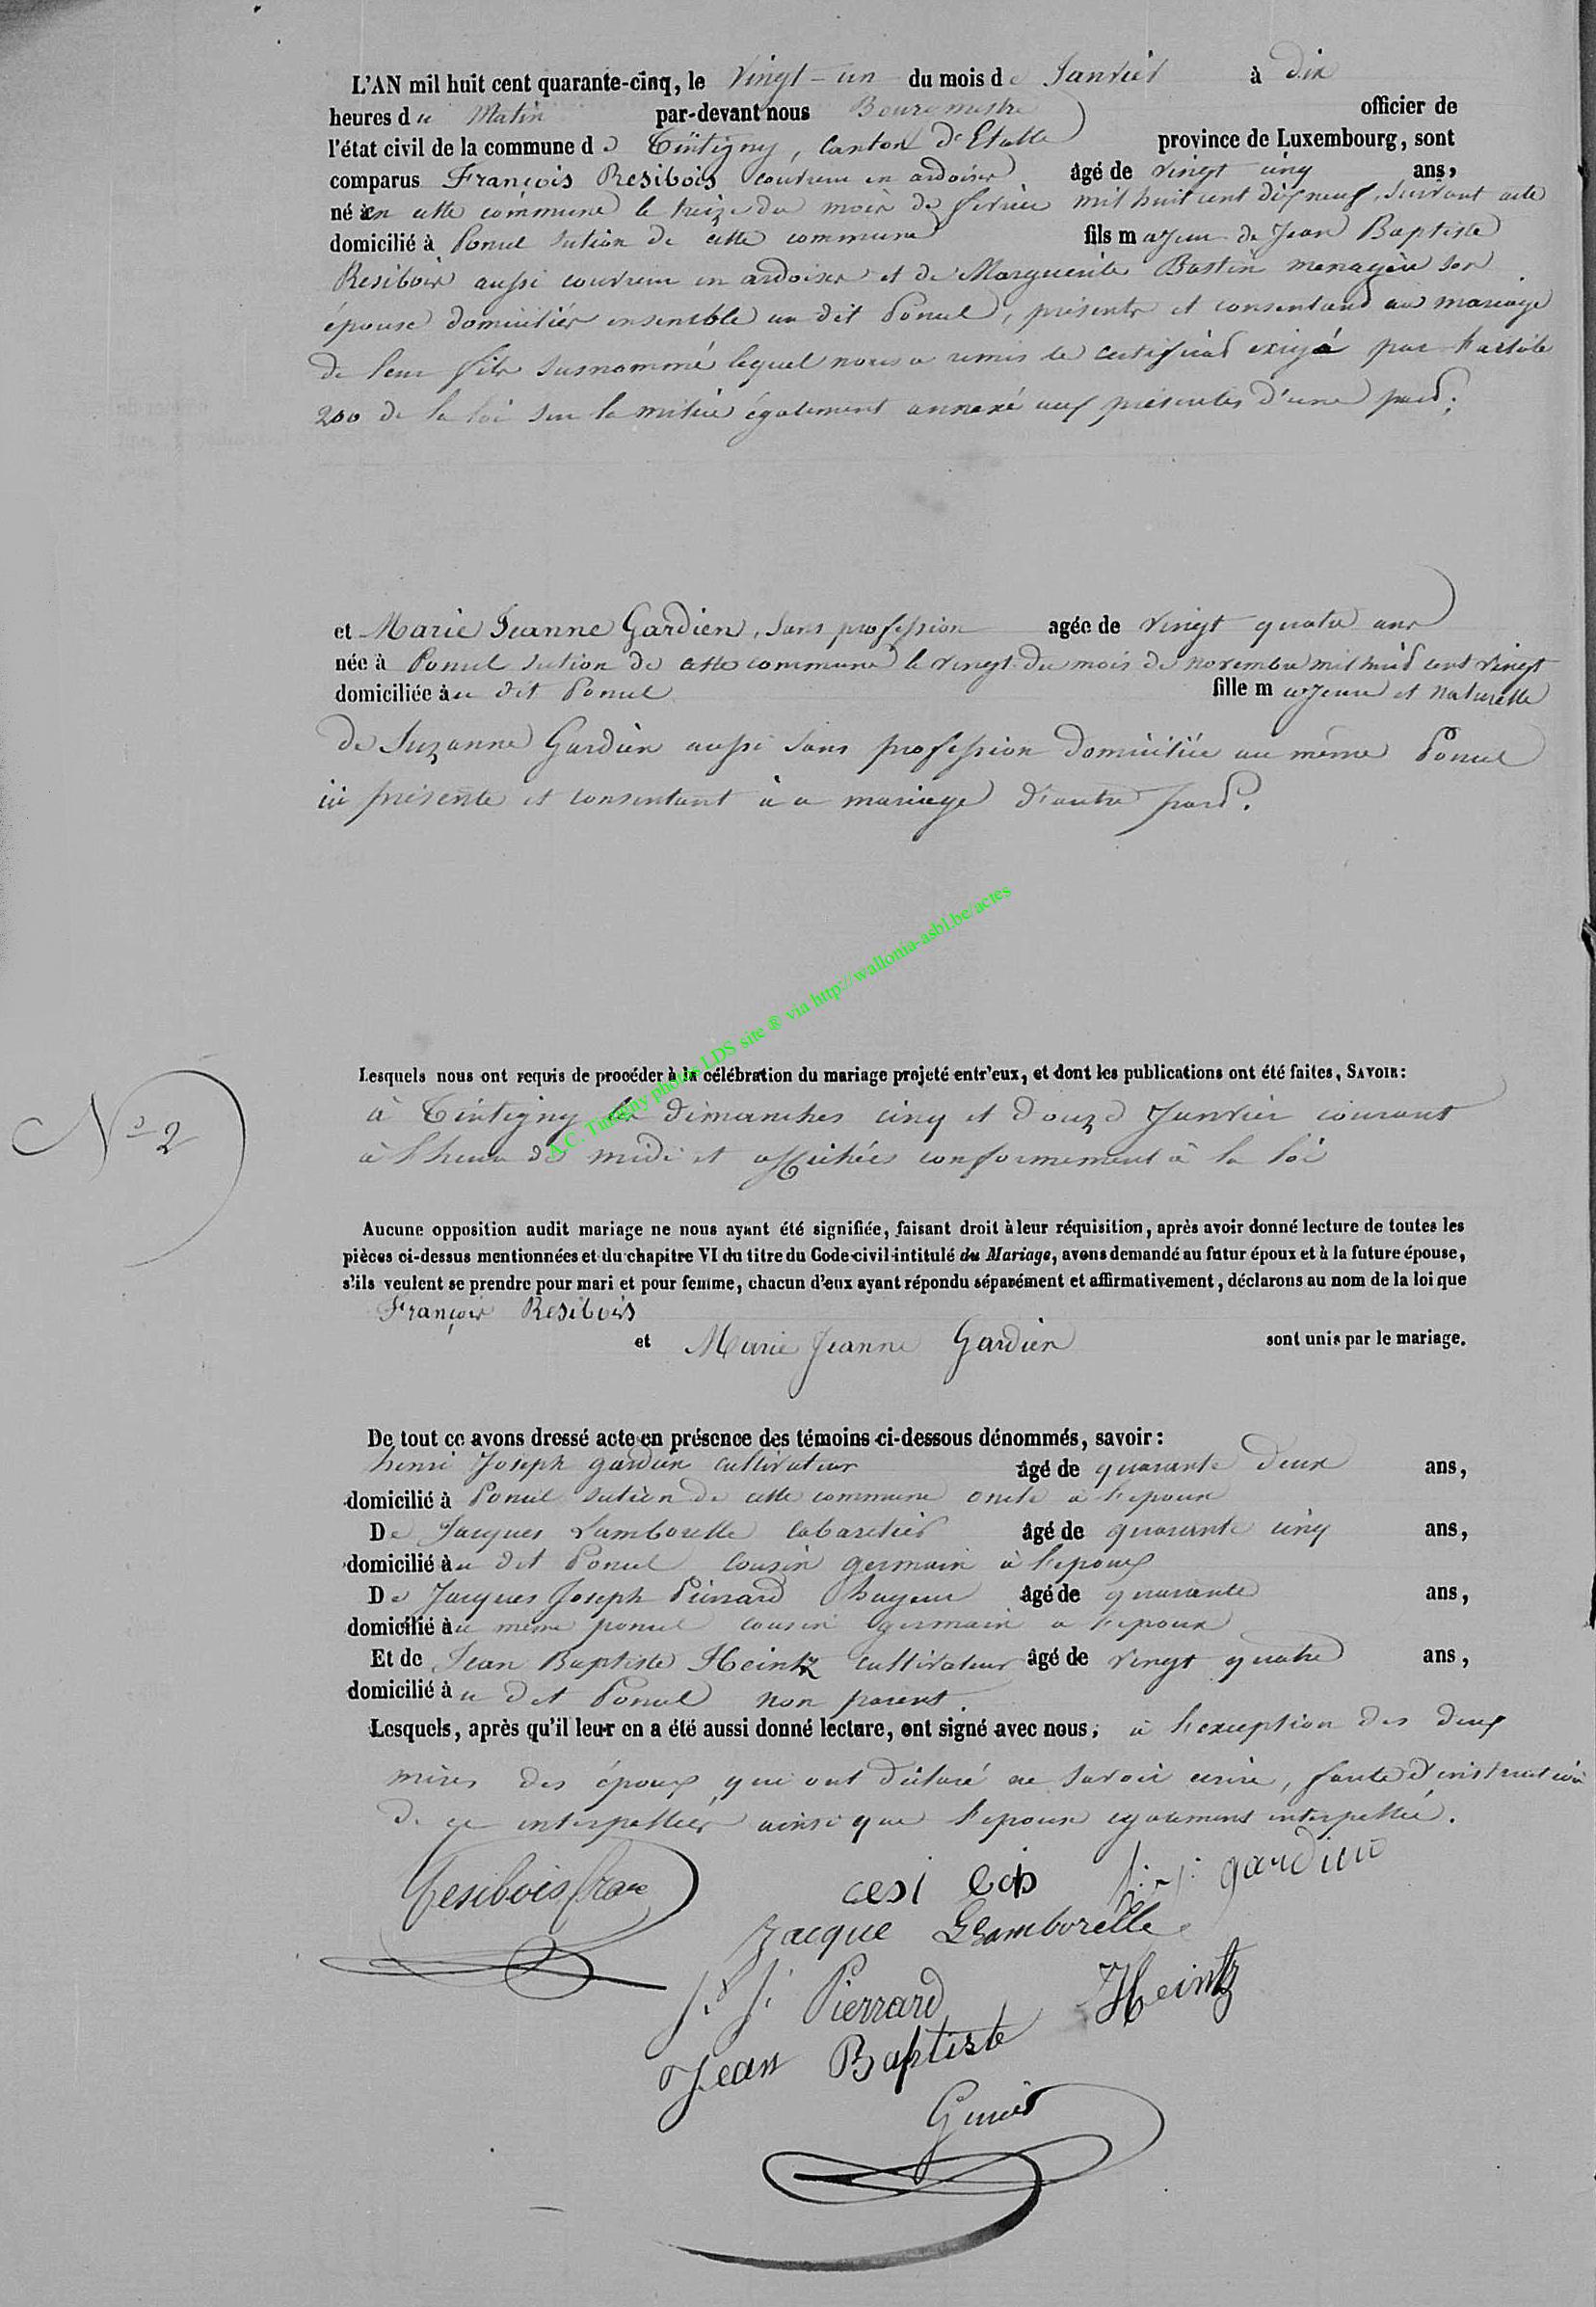 L'AN mil huit cent quarante-cinq, le Vingt-un du mois de Janvier à dix
heures du Matin par-devant nous Bourgmestre officier de
l'état civil de la commune de Tintigny, Canton d'Etalle province de Luxembourg, sont
comparus François Resibois couvreur en ardoises âgé de vingt cinq ans,
né en cette commune le treize du mois de février mil huit cent dix neuf, suivant acte
domicilié à Poncel section de cette commune fils majeur de Jean Baptiste
Resibois aussi couvreur en ardoises et de Marguerite Bastin menagère son
épouse domiciliés ensemble au dit Poncel, présents et consentant au mariage
de leur fils susnommé lequel nous a remis le certificat exigé par l'article
200 de la loi sur la milice également annexé aux présentes d'une part;
et Marie Jeanne Gardien, sans profession agée de vingt quatre ans
née à Poncel section de cette commune le vingt du mois de novembre mil huit cent vingt
domiciliée au dit Poncel fille majeure et naturelle
de Suzanne Gardien aussi sans profession domiciliée au même Poncel
ici présente et consentant à ce mariage d'autre part.
A.C. Tintigny photos LDS site ® via http://wallonia-asbl.be/actes
Lesquels nous ont requis de procéder à la célébration du mariage projeté entr'eux, et dont les publications ont été faites, SAVOIR:
N° 2
à Tintigny les dimanches cinq et douze Janvier courant
à l'heure de midi et affichées conformement à la loi
Aucune opposition audit mariage ne nous ayant été signifiée, faisant droit à leur réquisition, après avoir donné lecture de toutes les
pièces ci-dessus mentionnées et du chapitre VI du titre du Code civil intitulé du Mariage, avons demandé au futur époux et à la future épouse,
s'ils veulent se prendre pour mari et pour femme, chacun d'eux ayant répondu séparément et affirmativement, déclarons au nom de la loi que
François Resibois
et Marie Jeanne Gardien sont unis par le mariage.
De tout ce avons dressé acte en présence des témoins ci-dessous dénommés, savoir:
henri Joseph gardien cultivateur âgé de quarante deux ans,
domicilié à Poncel section de cette commune oncle à l'epouse
De Jacques Lamborelle cabaretier âgé de quarante cinq ans,
domicilié au dit Poncel cousin germain à l'epoux
De Jacques Joseph Pierrard âgé de quarante ans,
domicilié au même poncel cousin germain a l'epouse
Et de Jean Baptiste Heintz cultivateur âgé de vingt quatre ans,
domicilié au dit Poncel non parent.
Lesquels, après qu'il leur en a été aussi donné lecture, ont signé avec nous, à l'exception des deux
mères des époux, qui ont déclaré ne savoir ecrire, faute d'instruction
de ce interpellées ainsi que l'epouse egalement interpellée.
Resibois fran
H: J: gardien
Jacque Lamborelle
J. J. Pierrard
Heintz
Jean Baptiste